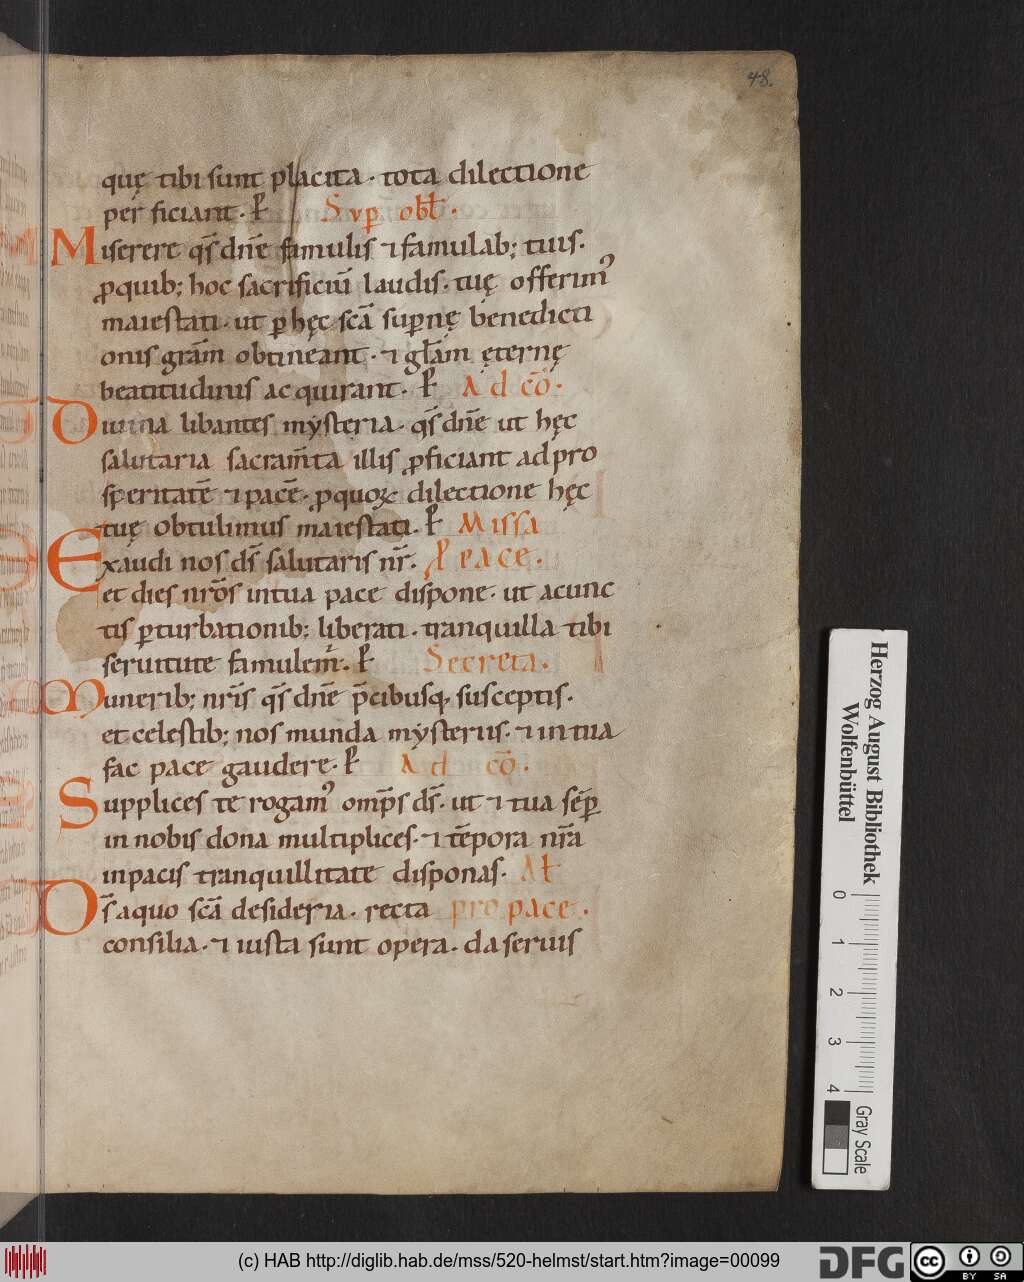 48.
quę tibi sunt placita · tota dilectione
perficiant · P̄ Sup̄ obl̄ ·
Miserere q̄s dn̄e famulis ⁊ famulab; tuis ·
ꝓ quib; hoc sacrificiū laudis · tuę offerim᾽
maiestati · ut ꝑ hęc scā suꝑnę benedicti
onis grām obtineant · ⁊ glām ęternę
beatitudinis acquirant · P̄ Ad cō ·
Diuina libantes mysteria · q̄s dn̄e ut hęc
salutaria sacram̄ta illis ꝓficiant ad pro
speritatē ⁊ pacē · ꝓ quoꝝ dilectione hęc
tuę obtulimus maiestati · P̄ Missa
Exaudi nos ds̄ salutaris nr̄ · P pace ·
et dies nr̄os in tua pace dispone · ut a cunc
tis ꝑturbationib; liberati · tranquilla tibi
seruitute famulem᷑ · P̄ Secreta ·
Munerib; nr̄is q̄s dn̄e p̄cibusq, susceptis ·
et celestib; nos munda mysteriis · ⁊ in tua
fac pace gaudere · P̄ Ad cō ·
Supplices te rogam᾽ omp̄s ds̄ · ut ⁊ tua sēꝑ
in nobis dona multiplices · ⁊ tēpora nr̄a
in pacis tranquillitate disponas · Al̄
Ds̄ a quo scā desideria · recta pro pace ·
consilia · ⁊ iusta sunt opera · da seruis
Herzog August Bibliothek
Wolfenbüttel
0 1 2 3 4
Gray Scale
(c) HAB http://diglib.hab.de/mss/520-helmst/start.htm?image=00099
DFG
cc
BY SA